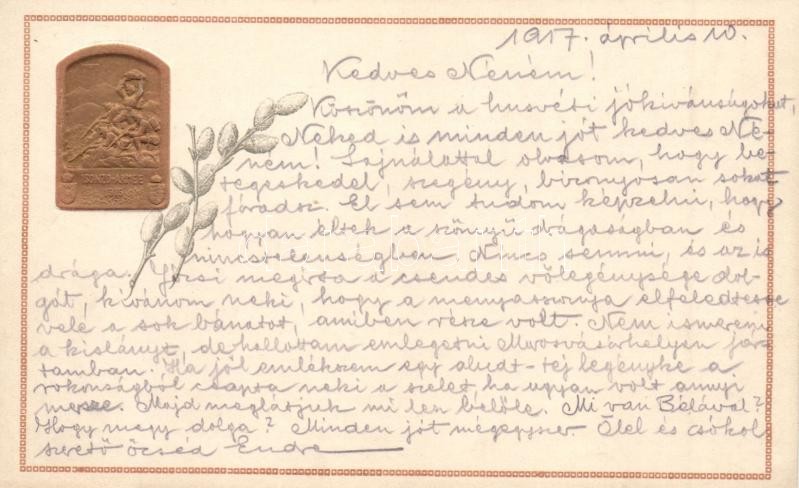 1917. április 10.
Kedves Néném!
Köszönöm a husvéti jókivánságokat,
Neked is minden jót kedves Né-
ném! Sajnálattal olvasom, hogy be-
tegeskedel, szegény, bizonyosan sokat
fáradsz. El sem tudom képzelni, hogy
hogyan éltek a szörnyü drágaságban és
nincstelenségben. Nincs semmi, és az is
drága. Józsi megirta a csendes völegénysége dol-
gát, kivánom neki, hogy a menyasszonya elfeledtesse
vele a sok bánatot, amiben része volt. Nem ismerem
a kislányt, de hallottam emlegetni Marosvásárhelyen jár-
tamban. Ha jól emlékszem egy aludt-tej legényke a
rokonságból csapta neki a szelet, ha ugyan volt annyi
mersze. Majd meglátjuk mi lesz belöle. Mi van Bélával?
Hogy megy dolga? Minden jót mégegyszer. Ölel és csókol
szeretö öcséd Endre
ISONZO-ARMEE